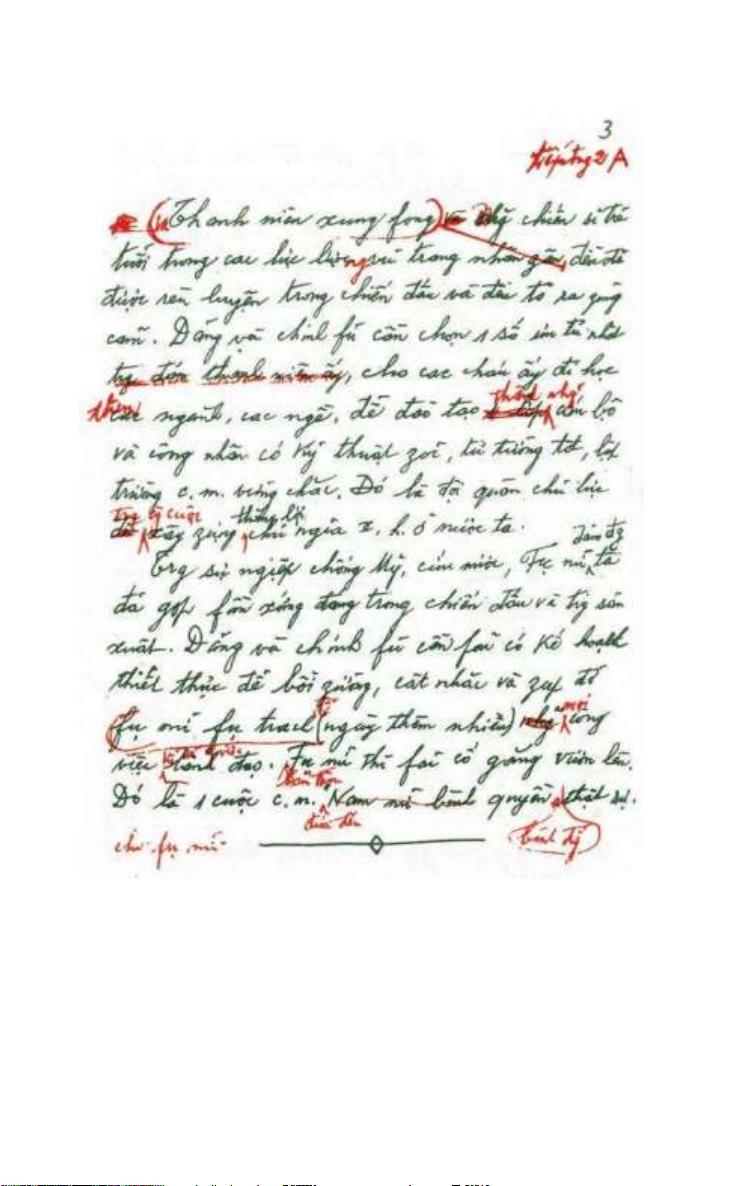 3
tiếp trg 2 A
Thanh niên xung fong và nhg chiến sĩ trẻ
tuổi trong các lực lượng vũ trang nhân zân đều đã
được rèn luyện trong chiến đấu và đều tỏ ra zũng
cảm. Đảng và chính fủ cần chọn 1 số ưu tú nhất
trg đám thanh niên ấy, cho các cháu ấy đi học
thêm các ngành, các ngề, để đào tạo thành nhg cán bộ
và công nhân có kỹ thuật zỏi, tư tưởng tốt, lập
trường c.m. vững chắc. Đó là đội quân chủ lực
trg công cuộc xây zựng thắng lợi chủ ngĩa x.h. ở nước ta.
Trg sự ngiệp chống Mỹ, cứu nước, Fụ nữ đảm đg ta
đã góp fần xứng đáng trong chiến đấu và trg sản
xuất. Đảng và chính fủ cần fải có kế hoạch
thiết thực để bồi zưỡng, cất nhắc và zúp đỡ
để fụ nữ fụ trách (ngày thêm nhiều) mọi công
việc kể cả công việc lãnh đạo. Bản thân Fụ nữ thì fải cố gắng vươn lên.
Đó là 1 cuộc c.m. đưa đến Nam nữ bình quyền thật sự.
cho fụ nữ
bình đg